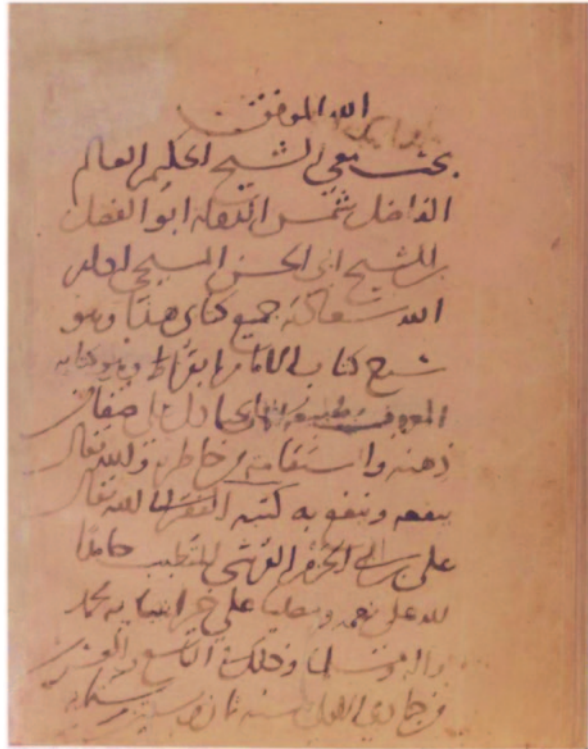 الله الموفق
بحث معي الشيخ الحكيم العالم
الفاضل شمس الدولة ابو الفضل
بن الشيخ ابي الحسن المسيحي ادام
الله سعادته جميع كتابي هذا وهو
شرح كتاب الامام ابقراط وهو كتابه
المعروف بطبيعة الانسان دل على صفاء
ذهنه واستقامة خاطره والله تعالى
ينفعه وينفع به كتبه الفقير الى الله تعالى
علي بن ابي الحزم القرشي المتطبب حامدا
لله على نعمه ومصليا على خير انبيائه محمد
واله ومسلما وذلك في التاسع والعشرين
من جمادى الاولى سنة ثمان وستين وستمائة